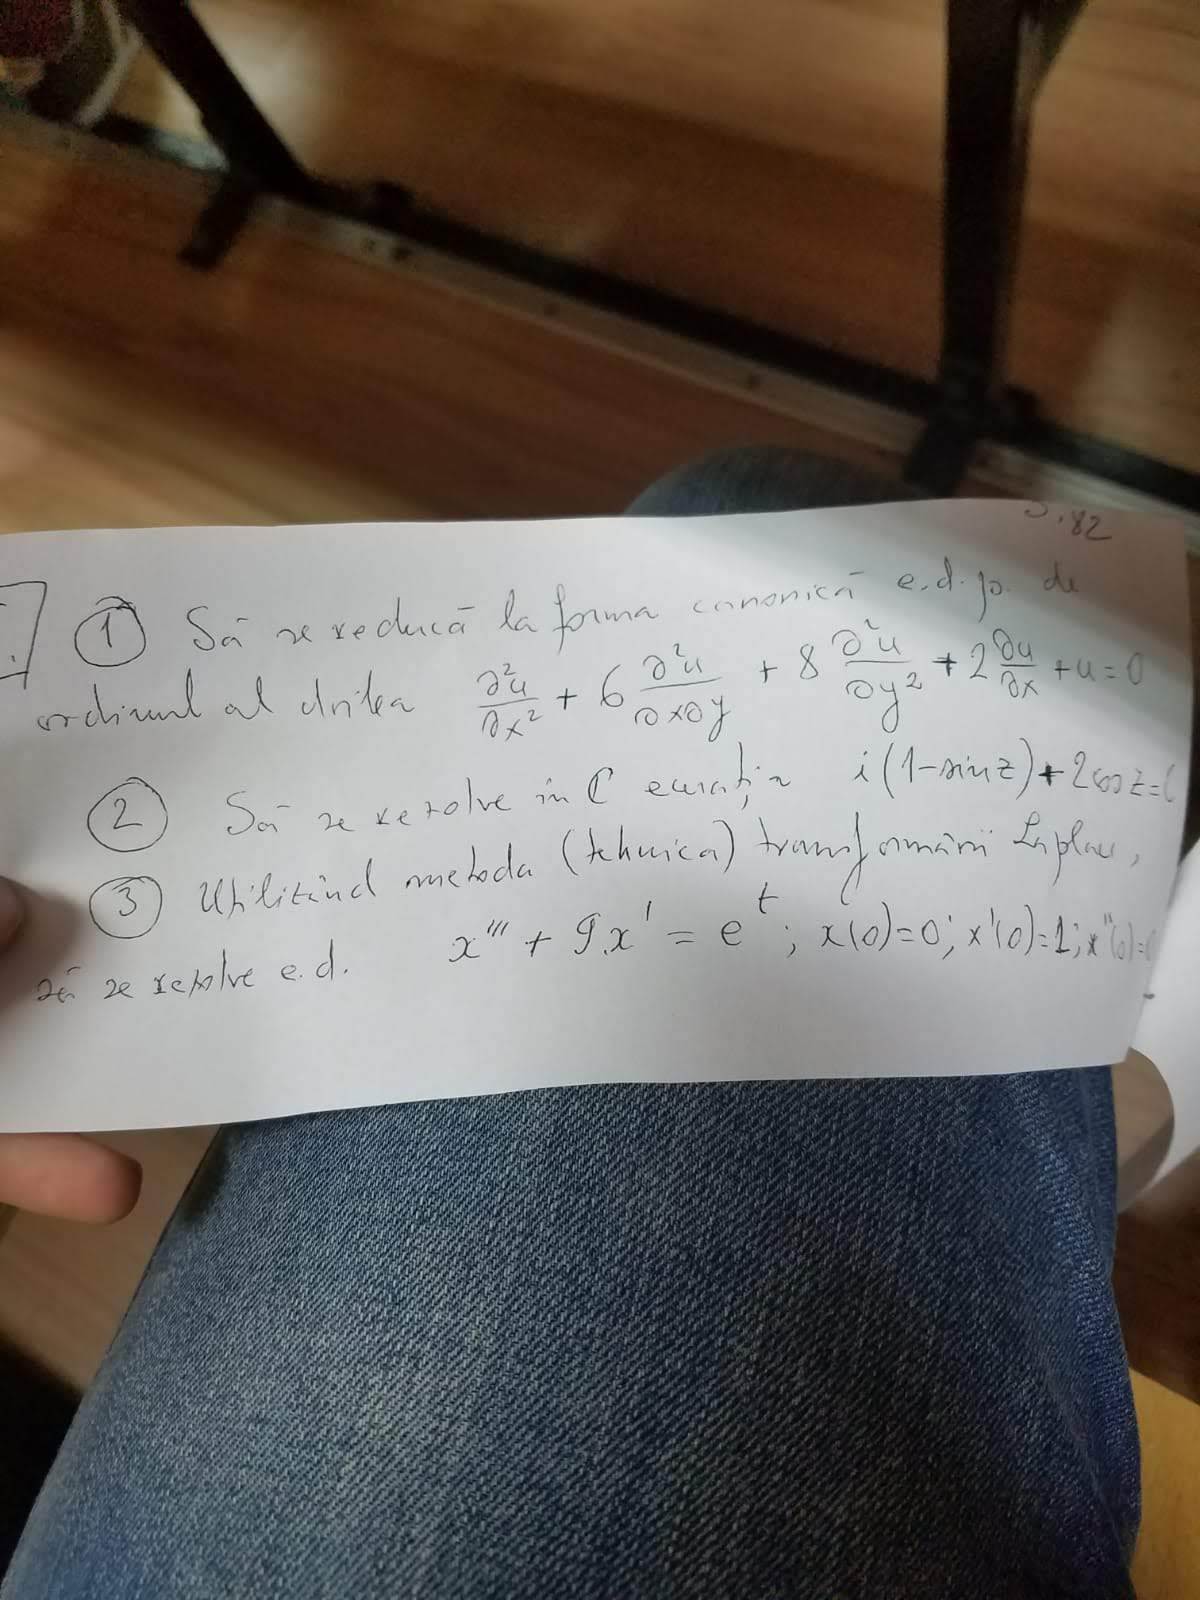 5.82
① Să se reducă la forma canonică e.d.p. de
ordinul al doilea ∂²u/∂x² + 6 ∂²u/∂x∂y + 8 ∂²u/∂y² + 2 ∂u/∂x + u = 0
② Să se rezolve în C ecuația i(1-sin z) + 2cos z =
③ Utilizând metoda (tehnica) transformării Laplace,
să se rezolve e.d. x''' + 9.x' = e^t ; x(0)=0; x'(0)=1; x''(0)=